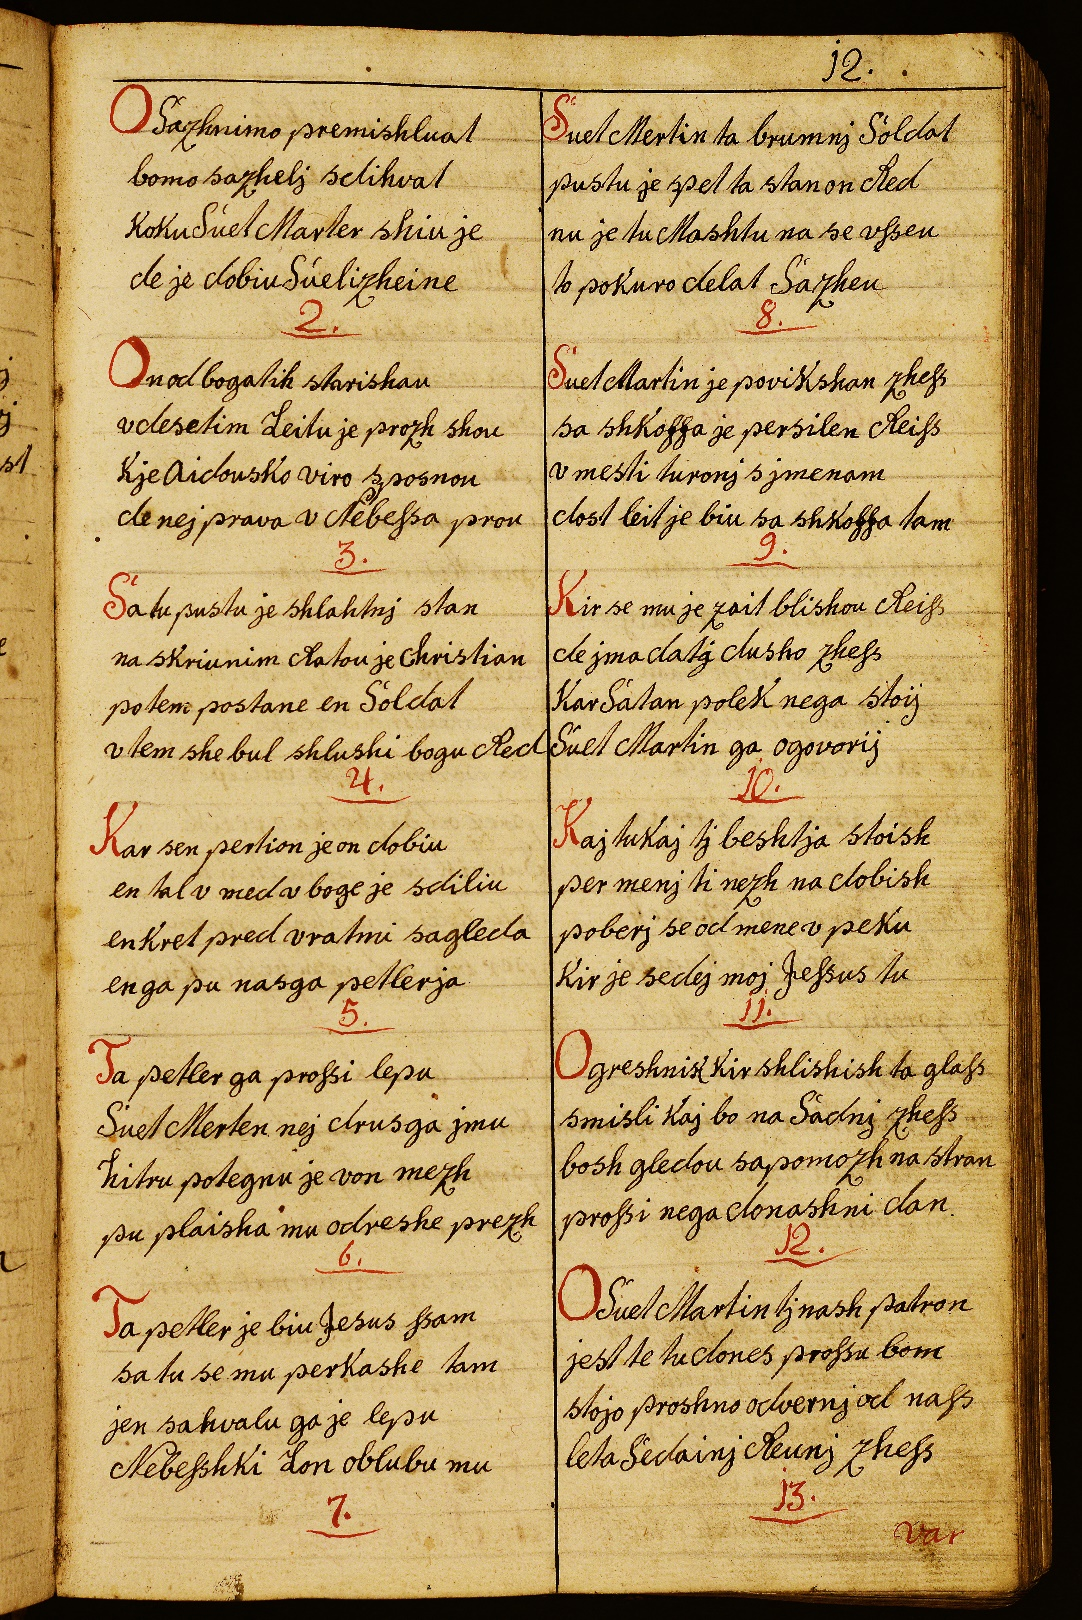 12.
O Sazhnimo premishluat
bomo sazhelj sdihvat
Koku Suet Marter shiu je
de je dobiu Suelizheine
2.
On od bogatih starishau
v desetim Leitu je prozh shou
Kje Aidousko viro sposnou
de nej prava v Nebessa prou
3.
Sa tu pustu je shlahtnj stan
na skriunim Ratou je Christian
potem postane en Soldat
v tem she bul shlushi bogu Red
4.
Kar sen pertion je on dobiu
en tal v med v boge je sdiliu
enkret pred vratmi sagleda
enga pu nasga petlerja
5.
Ta petler ga prossi lepu
Suet Merten nej drusga jmu
hitru potegnu je von mezh
pu plaisha mu odreshe prezh
6.
Ta petler je biu Jesus ssam
sa tu se mu perkashe tam
jen sahvalu ga je lepu
Nebesshki Lon oblubu mu
7.
Suet Mertin ta brumnj Soldat
pustu je spet ta stan on Red
nu je tu Mashtu na se vsseu
to pokuro delat Sazheu
8.
Suet Martin je povikshan zhess
sa shkoffa je persilen Reiss
v mesti turonj s jmenam
dost leit je biu sa shkoffa tam
9.
Kir se mu je zait blishou Reiss
de jma datj dusho zhess
Kar Satan polek nega stoij
Suet Martin ga ogovorij
10.
Kaj tukaj tj beshtja stoish
per menj ti nezh na dobish
poberj se od mene v peku
Kir je sedej moj Jessus tu
11.
O greshnik kir shlishish ta glass
smisli kaj bo na Sadnj zhess
bosh gledou sa pomozh na stran
prossi nega donashni dan.
12.
O Suet Martin tj nash patron
jest te tu dones prossu bom
stojo proshno odvernj od nass
leta Sedainj Reunj zhess
13.
var